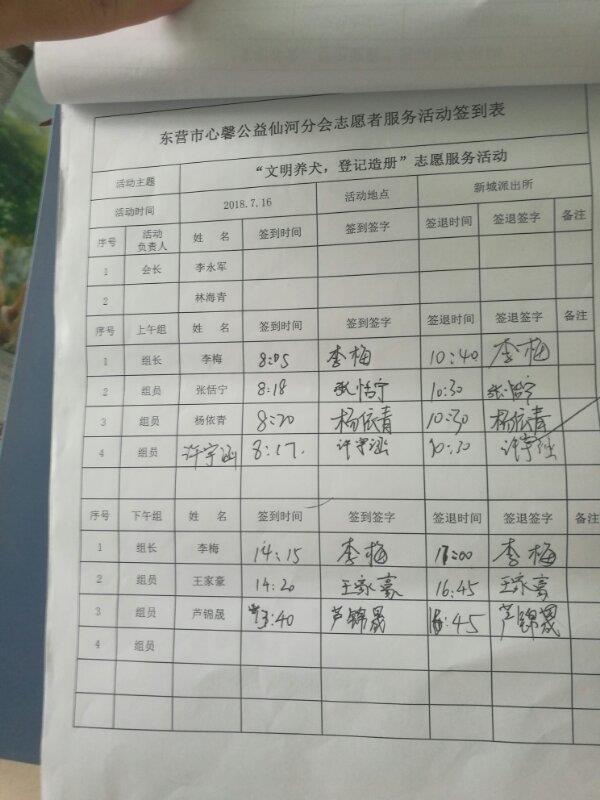 东营市心馨公益仙河分会志愿者服务活动签到表
活动主题 “文明养犬，登记造册”志愿服务活动
活动时间 2018.7.16 活动地点 新城派出所
序号 活动负责人 姓 名 签到时间 签到签字 签退时间 签退签字 备注
1 会长 李永军
2 林海青
序号 上午组 姓 名 签到时间 签到签字 签退时间 签退签字 备注
1 组长 李梅 8:05 李梅 10:40 李梅
2 组员 张恬宁 8:18 张恬宁 10:30 张恬宁
3 组员 杨依青 8:20 杨依青 10:30 杨依青
4 组员 许宇涵 8:17. 许宇涵 10:30 许宇涵
序号 下午组 姓 名 签到时间 签到签字 签退时间 签退签字 备注
1 组长 李梅 14:15 李梅 17:00 李梅
2 组员 王家豪 14:20 王家豪 16:45 王家豪
3 组员 芦锦晟 13:40 芦锦晟 :45 芦锦晟
4 组员